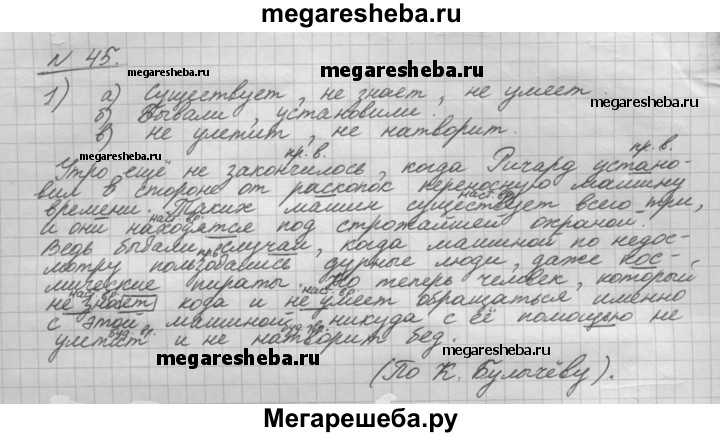 megaresheba.ru
N 45.
megaresheba.ru
megaresheba.ru
1) а) Существует, не знает, не умеет.
megaresheba.ru
б) Бывали, установили.
в) не улетит, не натворит.
пр. в. пр. в.
Утро ещё не закончилось, когда Ричард устано-
вил в стороне от раскопок переносную машину
наст. вр.
времени. Таких машин существует всего три,
наст. вр.
и они находятся под строжайшей охраной.
Ведь бывали случаи, когда машиной по недос-
пр. в.
мотру пользовались дурные люди, даже кос-
мические пираты. Но теперь человек, который
наст. вр. наст. вр.
не знает кода и не умеет обращаться именно
с этой машиной, никуда с её помощью не
буд. вр. буд. вр.
улетит и не натворит бед.
megaresheba.ru
megaresheba.ru
(По К. Булычёву).
Мегарешеба.ру